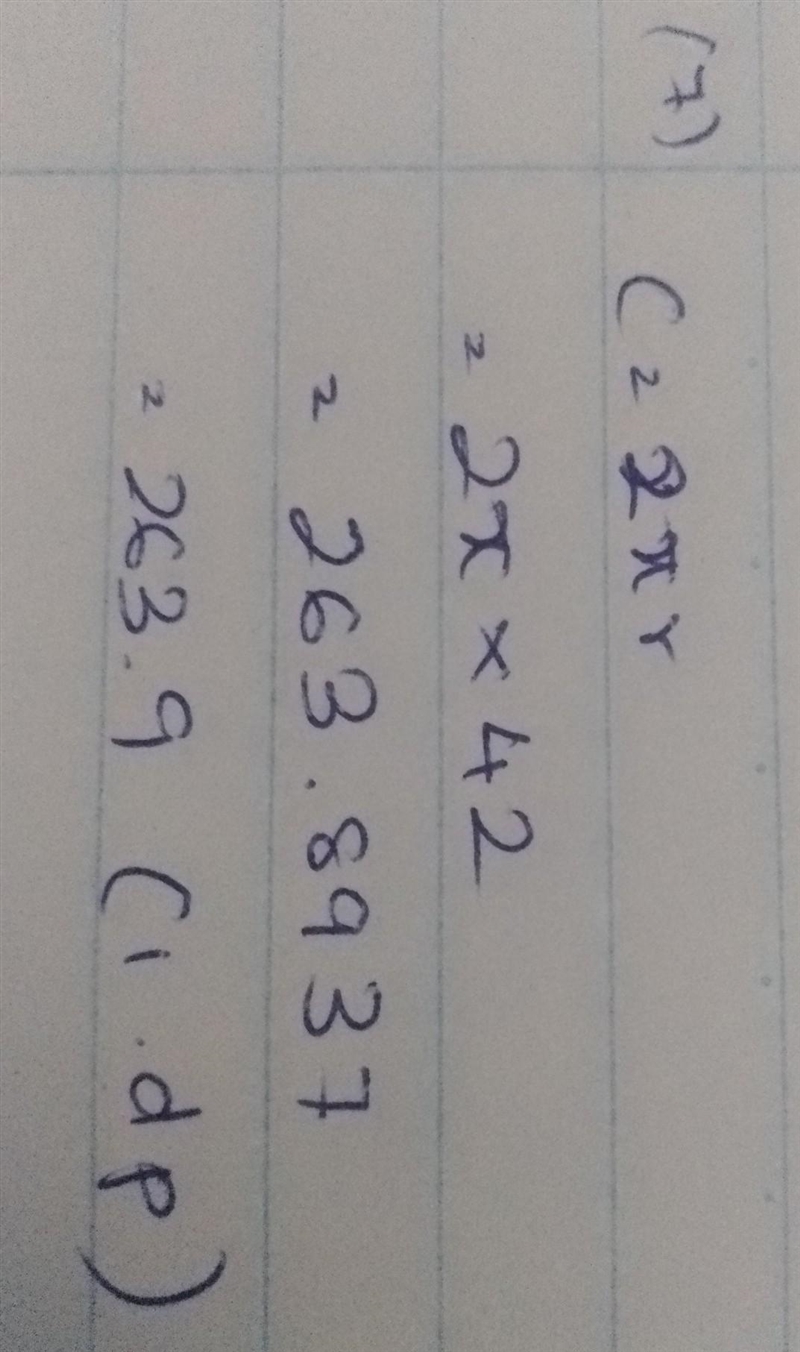 (7) C = 2πr
= 2π × 42
= 263.8937
= 263.9 (1.dp)